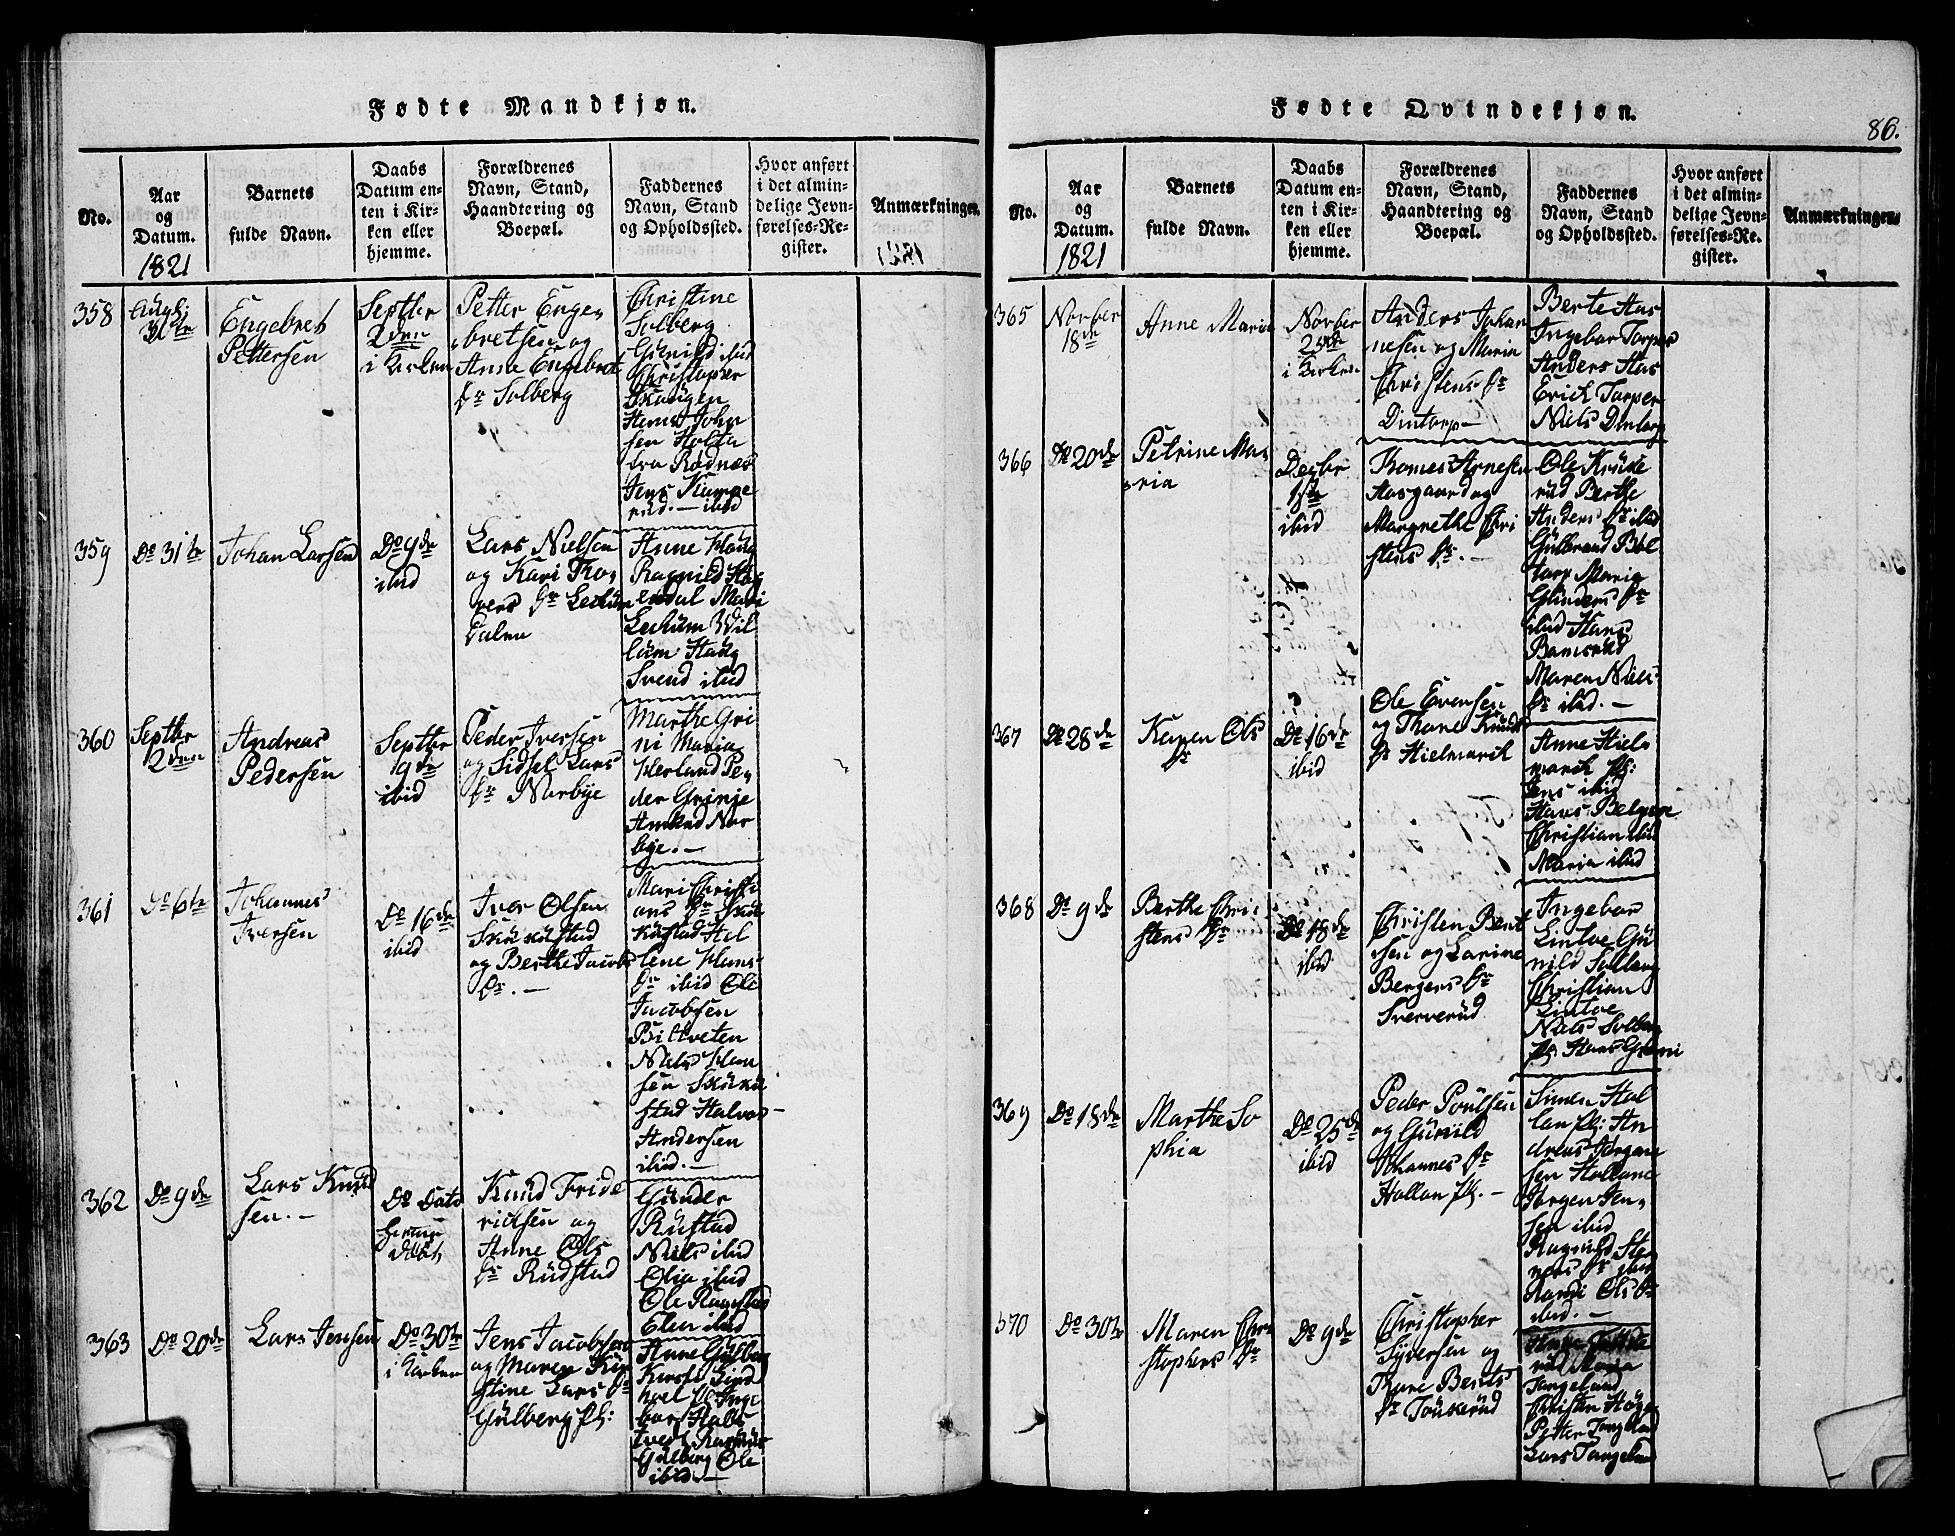 Fødte Mandkjøn.
No.
Aar
og
Datum.
1821
Barnets
fulde Navn.
Daabs
Datum en-
ten i Kir-
ken eller
hjemme.
Forældrenes
Navn, Stand,
Haandtering og
Boepæl.
Faddernes
Navn, Stand
og Opholdssted.
Hvor anført
i det almin-
delige Jevn-
førelses-Re-
gister.
Anmærkninger.
358
31te
Engebret
Pettersen
Septbr
2den
i Kirken
Petter Enge-
bretsen og
Anne Engebret
Dr Solberg
Christine
Solberg
Gunild ibid
Christopher
Skougen
Hans John
sen Holta
Jens
ibid
359
Do 31te
Johan Larsen
Do 9de
ibid
Lars Nielsen
og Kari Tho-
Dr
Dalen
Anne Haug
Ragnild
Mari
Haug
Svend ibid
360
Septbr
2den
Andreas
Pedersen
Septbr
9de
ibid
Peder Iversen
og Sidsel Lars
Dr Norbye
Marthe Gri
ni Maria
Pe-
der
Amund Nor
bye. —
361
Do 6te
Johannes
Iversen
Do 16de
ibid
Iver Olsen
Skukustad
og Berthe Jacobs
Dr. —
Mari Christi
ans Dr Sku
kustad Hel
lene Hans
Dr ibid Ole
Jacobsen
Bilkveten
Niels Han
sen Skuku
stad Halvor
Andersen
ibid. —
362
Do 9de
Lars Knud
sen. —
Do Dato
Knud Fride
richsen og
Anne Ols
Dr Rudstad
Gunder
Rustad
Niels ibid
Olia ibid
Ole
Elen ibid
363
Do 20de
Lars Jensen
Do 30te
i Kirken
Jens Jacobsen
og Maren Kir
stine Lars Dr
Gulberg pl:
Anne Gulberg
Kirsti
Iver
Gulberg Ole
ibid. —
Fødte Qvindekjøn.
86.
No.
Aar
og
Datum.
1821
Barnets
fulde Navn.
Daabs
Datum en-
ten i Kir-
ken eller
hjemme.
Forældrenes
Navn, Stand,
Haandtering og
Boepæl.
Faddernes
Navn, Stand
og Opholdssted.
Hvor anført
i det almin-
delige Jevn-
førelses-Re-
gister.
Anmærkninger.
365
Novber
18de
Anne Maria
Novber
25de
i Kirken
Anders Johan
nesen og Maria
Christens Dr
Dintorp —
Berte Aas
Ingebor Torper
Anders Aas
Erich Torper
Niels Dintorp
366
Do 20de
Petrine Ma-
ria
Decbr
ibid
Thomes Arnesen
Aasgaard og
Margrethe Chri
stens Dr. —
Ole Krude
rud Berthe
Anders Dr ibid
Gulbrand Böl
torp Maria
Gunders Dr
ibid Hans
Bamsrud
Maren Niels
Dr ibid. —
367
Do 28de
Karen Ols
Dr
Do 16de
ibid
Ole Evensen
og Thore Knuds
Dr Hielmarck
Anne Hiel-
marck pl:
Jens ibid
Hans
Christian ibid
Maria ibid
368
Do 9de
Berthe Chri-
stens Dr
Do 18de
ibid
Christen Bent
sen og Larine
Bergers Dr
Sververud
Ingebor
Lintoe Gu
nild Solberg
Christian
Lintoe
Niels Solberg
pl: Hans
369
Do 18de
Marthe So
phia
Do 25de
ibid
Peder Poulsen
og Gunild
Johannes Dr
Hollan pl: —
Simen Hol
lan pl: An
dreas Jörgen
sen Hollane
Jörgen Jen-
sen ibid
Ragnild Ste
ners Dr ibid
Randi Ols Dr
ibid. —
370
Do 30te
Maren Chri
stophers Dr
Do 9de
Christopher
Syversen og
Thore Bents
Dr Toukerud
Maria
Tangelund
Christen
Petter Tangelund
Lars Tangelund